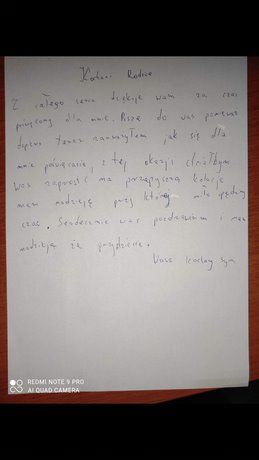 Kochani Rodzice
Z całego serca dziękuję wam za czas
poświęcony dla mnie. Piszę do was ponieważ
dopiero teraz zauważyłem jak się dla
mnie poświęcacie, z tej okazji chciałbym
was zaprosić na przepyszną kolacje
mam nadzieję przy której miło spędzimy
czas. Serdecznie was pozdrawiam i mam
nadzieję że przyjdziecie.
Wasz kochany syn
REDMI NOTE 9 PRO
AI QUAD CAMERA